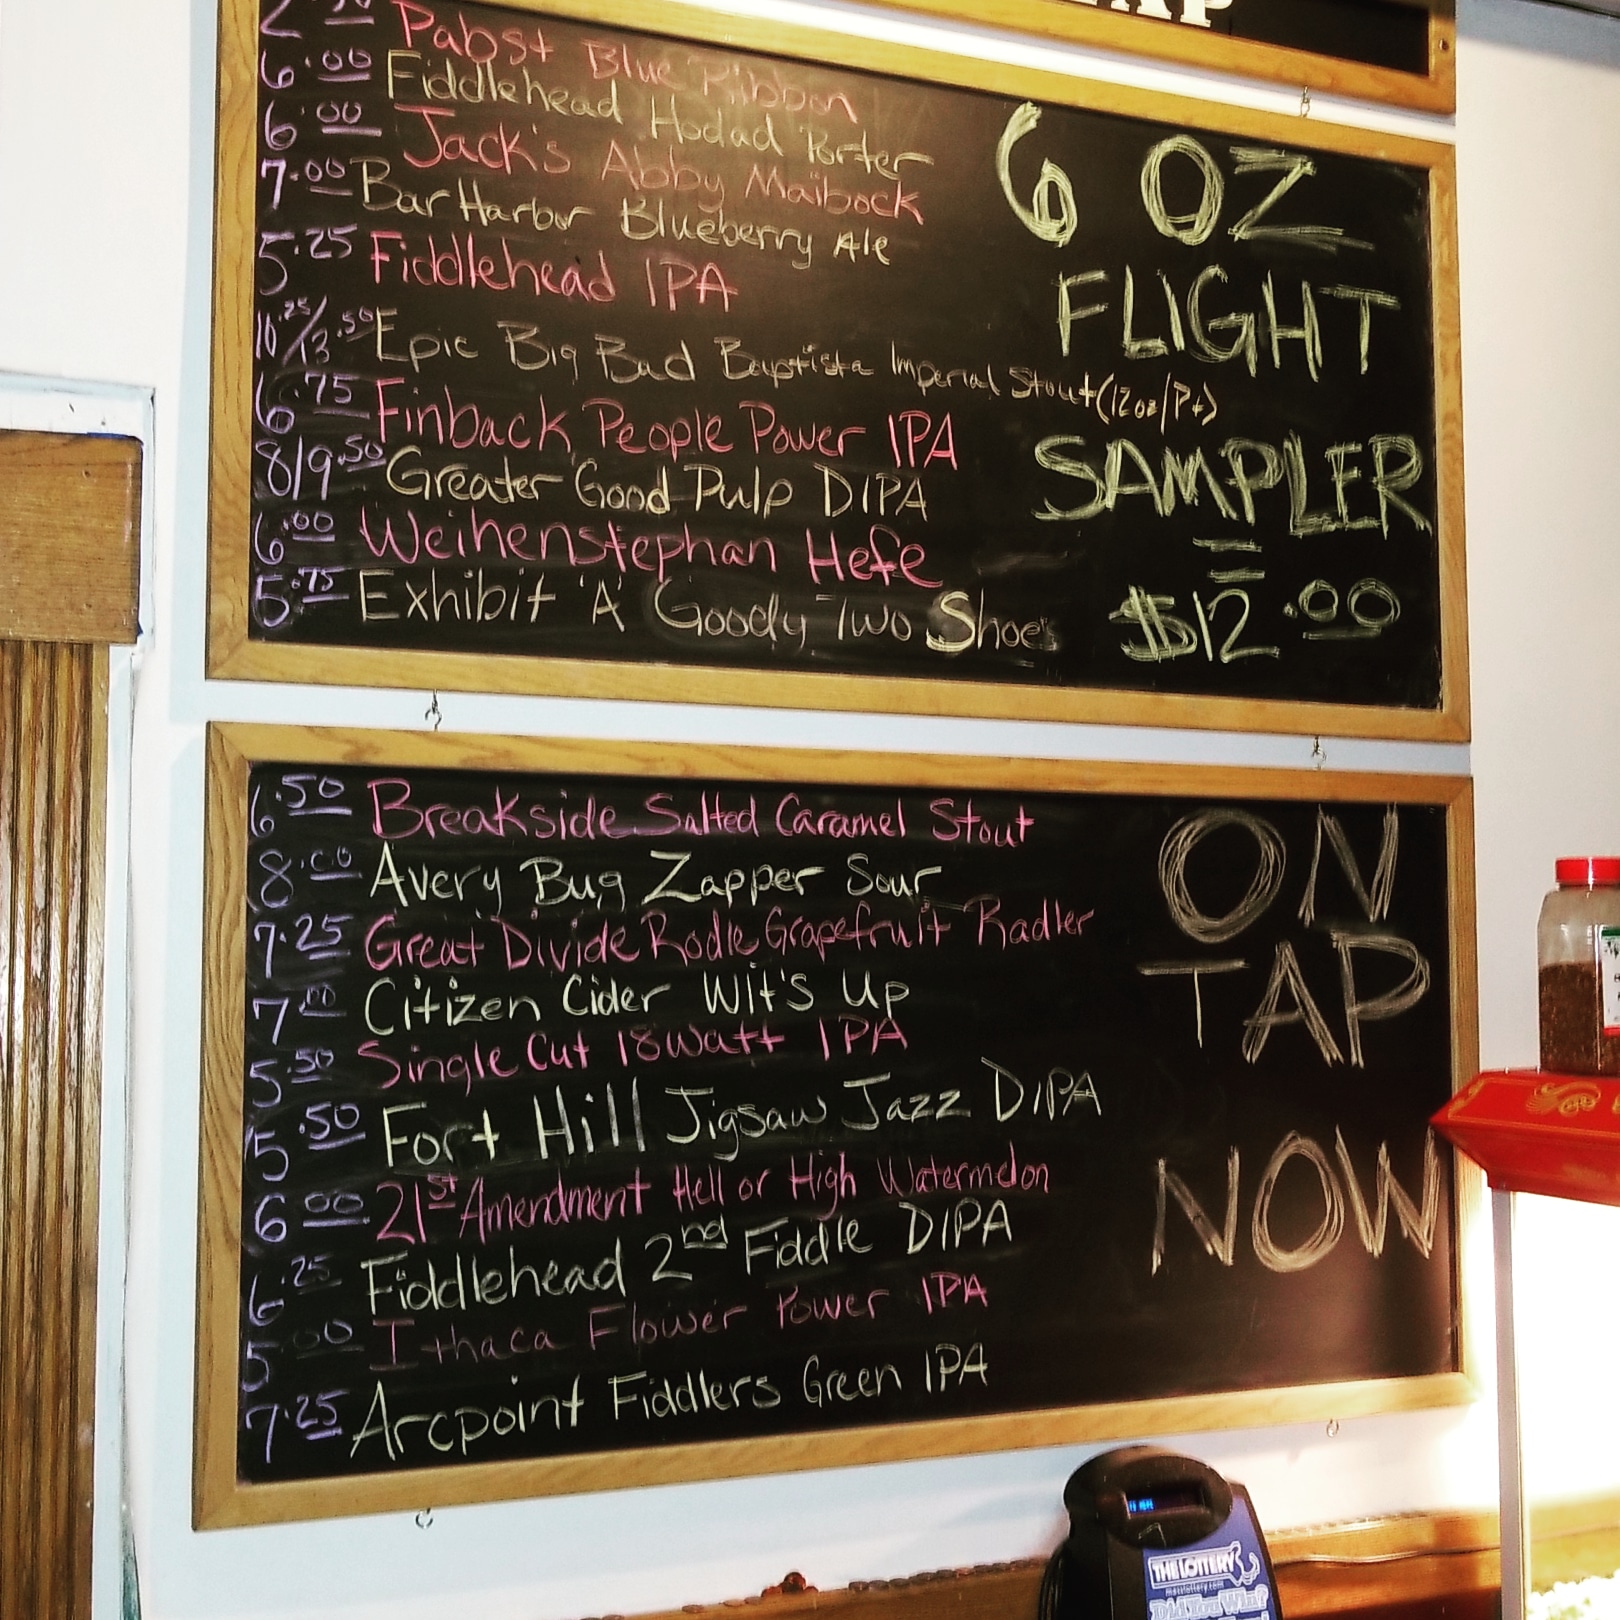 Pabst Blue Ribbon
6.00 Fiddlehead Hodad Porter
6.00 Jack's Abby Maibock
7.00 Bar Harbor Blueberry Ale
5.25 Fiddlehead IPA
10.25/13.50 Epic Big Bad Baptista Imperial Stout (12oz/Pt)
6.75 Finback People Power IPA
8/9.50 Greater Good Pulp DIPA
6.00 Weihenstephan Hefe
5.75 Exhibit 'A' Goody Two Shoes
6 OZ
FLIGHT
SAMPLER
=
$12.00
6.50 Breakside Salted Caramel Stout
8.00 Avery Bug Zapper Sour
7.25 Great Divide Rodle Grapefruit Radler
7.00 Citizen Cider Wit's Up
5.50 Single Cut 18 Watt IPA
5.50 Fort Hill Jigsaw Jazz DIPA
6.00 21st Amendment Hell or High Watermelon
6.25 Fiddlehead 2nd Fiddle DIPA
5.00 Ithaca Flower Power IPA
7.25 Arcpoint Fiddlers Green IPA
ON
TAP
NOW
THE LOTTERY
masslottery.com
Did You Win?